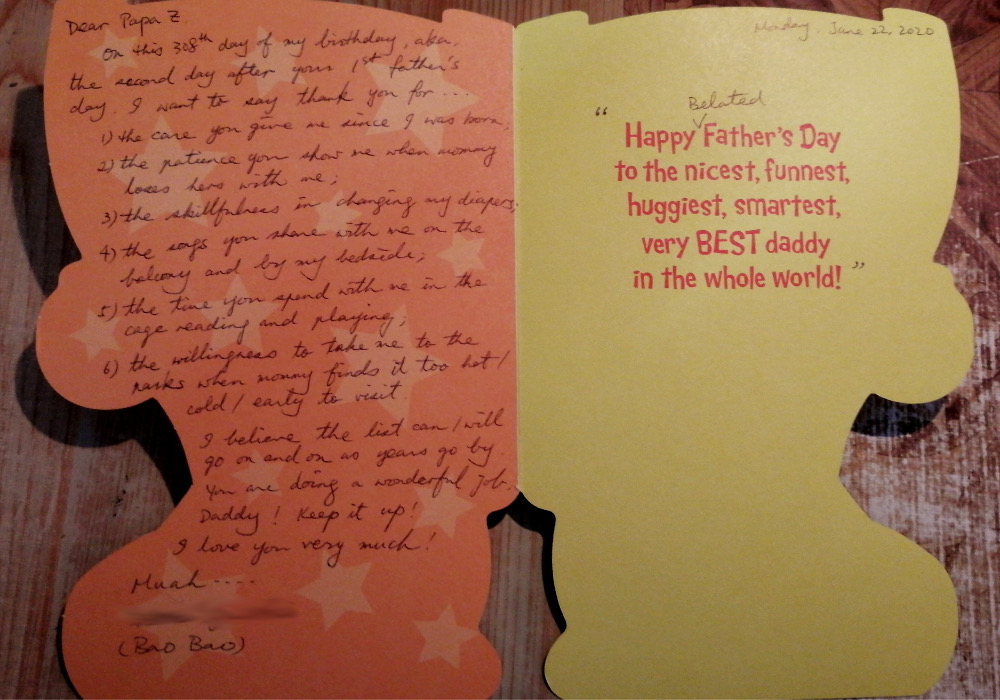 Dear Papa Z.
On this 308th day of my birthday, aka.
the second day after your 1st father's
day. I want to say thank you for ...
1) the care you give me since I was born;
2) the patience you show me when mommy
loses hers with me;
3) the skillfulness in changing my diapers;
4) the songs you share with me on the
balcony and by my bedside;
5) the time you spend with me in the
cage reading and playing;
6) the willingness to take me to the
parks when mommy finds it too hot/
cold/ early to visit
I believe the list can/will
go on and on as years go by.
You are doing a wonderful job.
Daddy! Keep it up!
I love you very much!
Muah ....
(Bao Bǎo)
Monday, June 22, 2020
Belated
“Happy Father's Day
to the nicest, funnest,
huggiest, smartest,
very BEST daddy
in the whole world!”